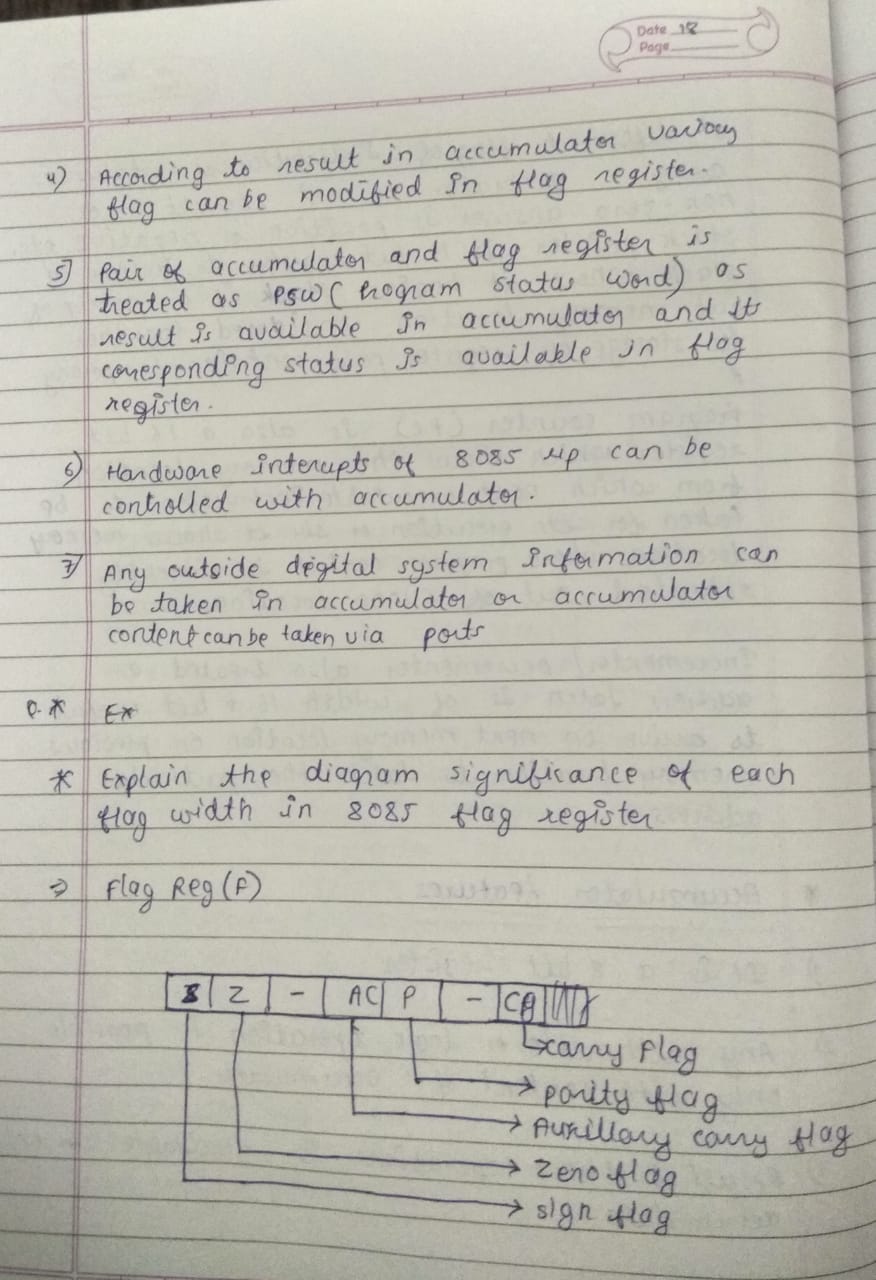 Date 18
Page
4) According to result in accumulator various
flag can be modified in flag register.
5) Pair of accumulator and flag register is
treated as PSW ( Program status word) as
result is available in accumulator and its
corresponding status is available in flag
register.
6) Hardware interupts of 8085 μp can be
controlled with accumulator.
7) Any outside digital system information can
be taken in accumulator or accumulator
content can be taken via ports
Q.* Ex
* Explain the diagram significance of each
flag width in 8085 flag register
⇒ Flag Reg (F)
S Z - AC P - CY
carry flag
parity flag
Auxillary carry flag
Zero flag
sign flag